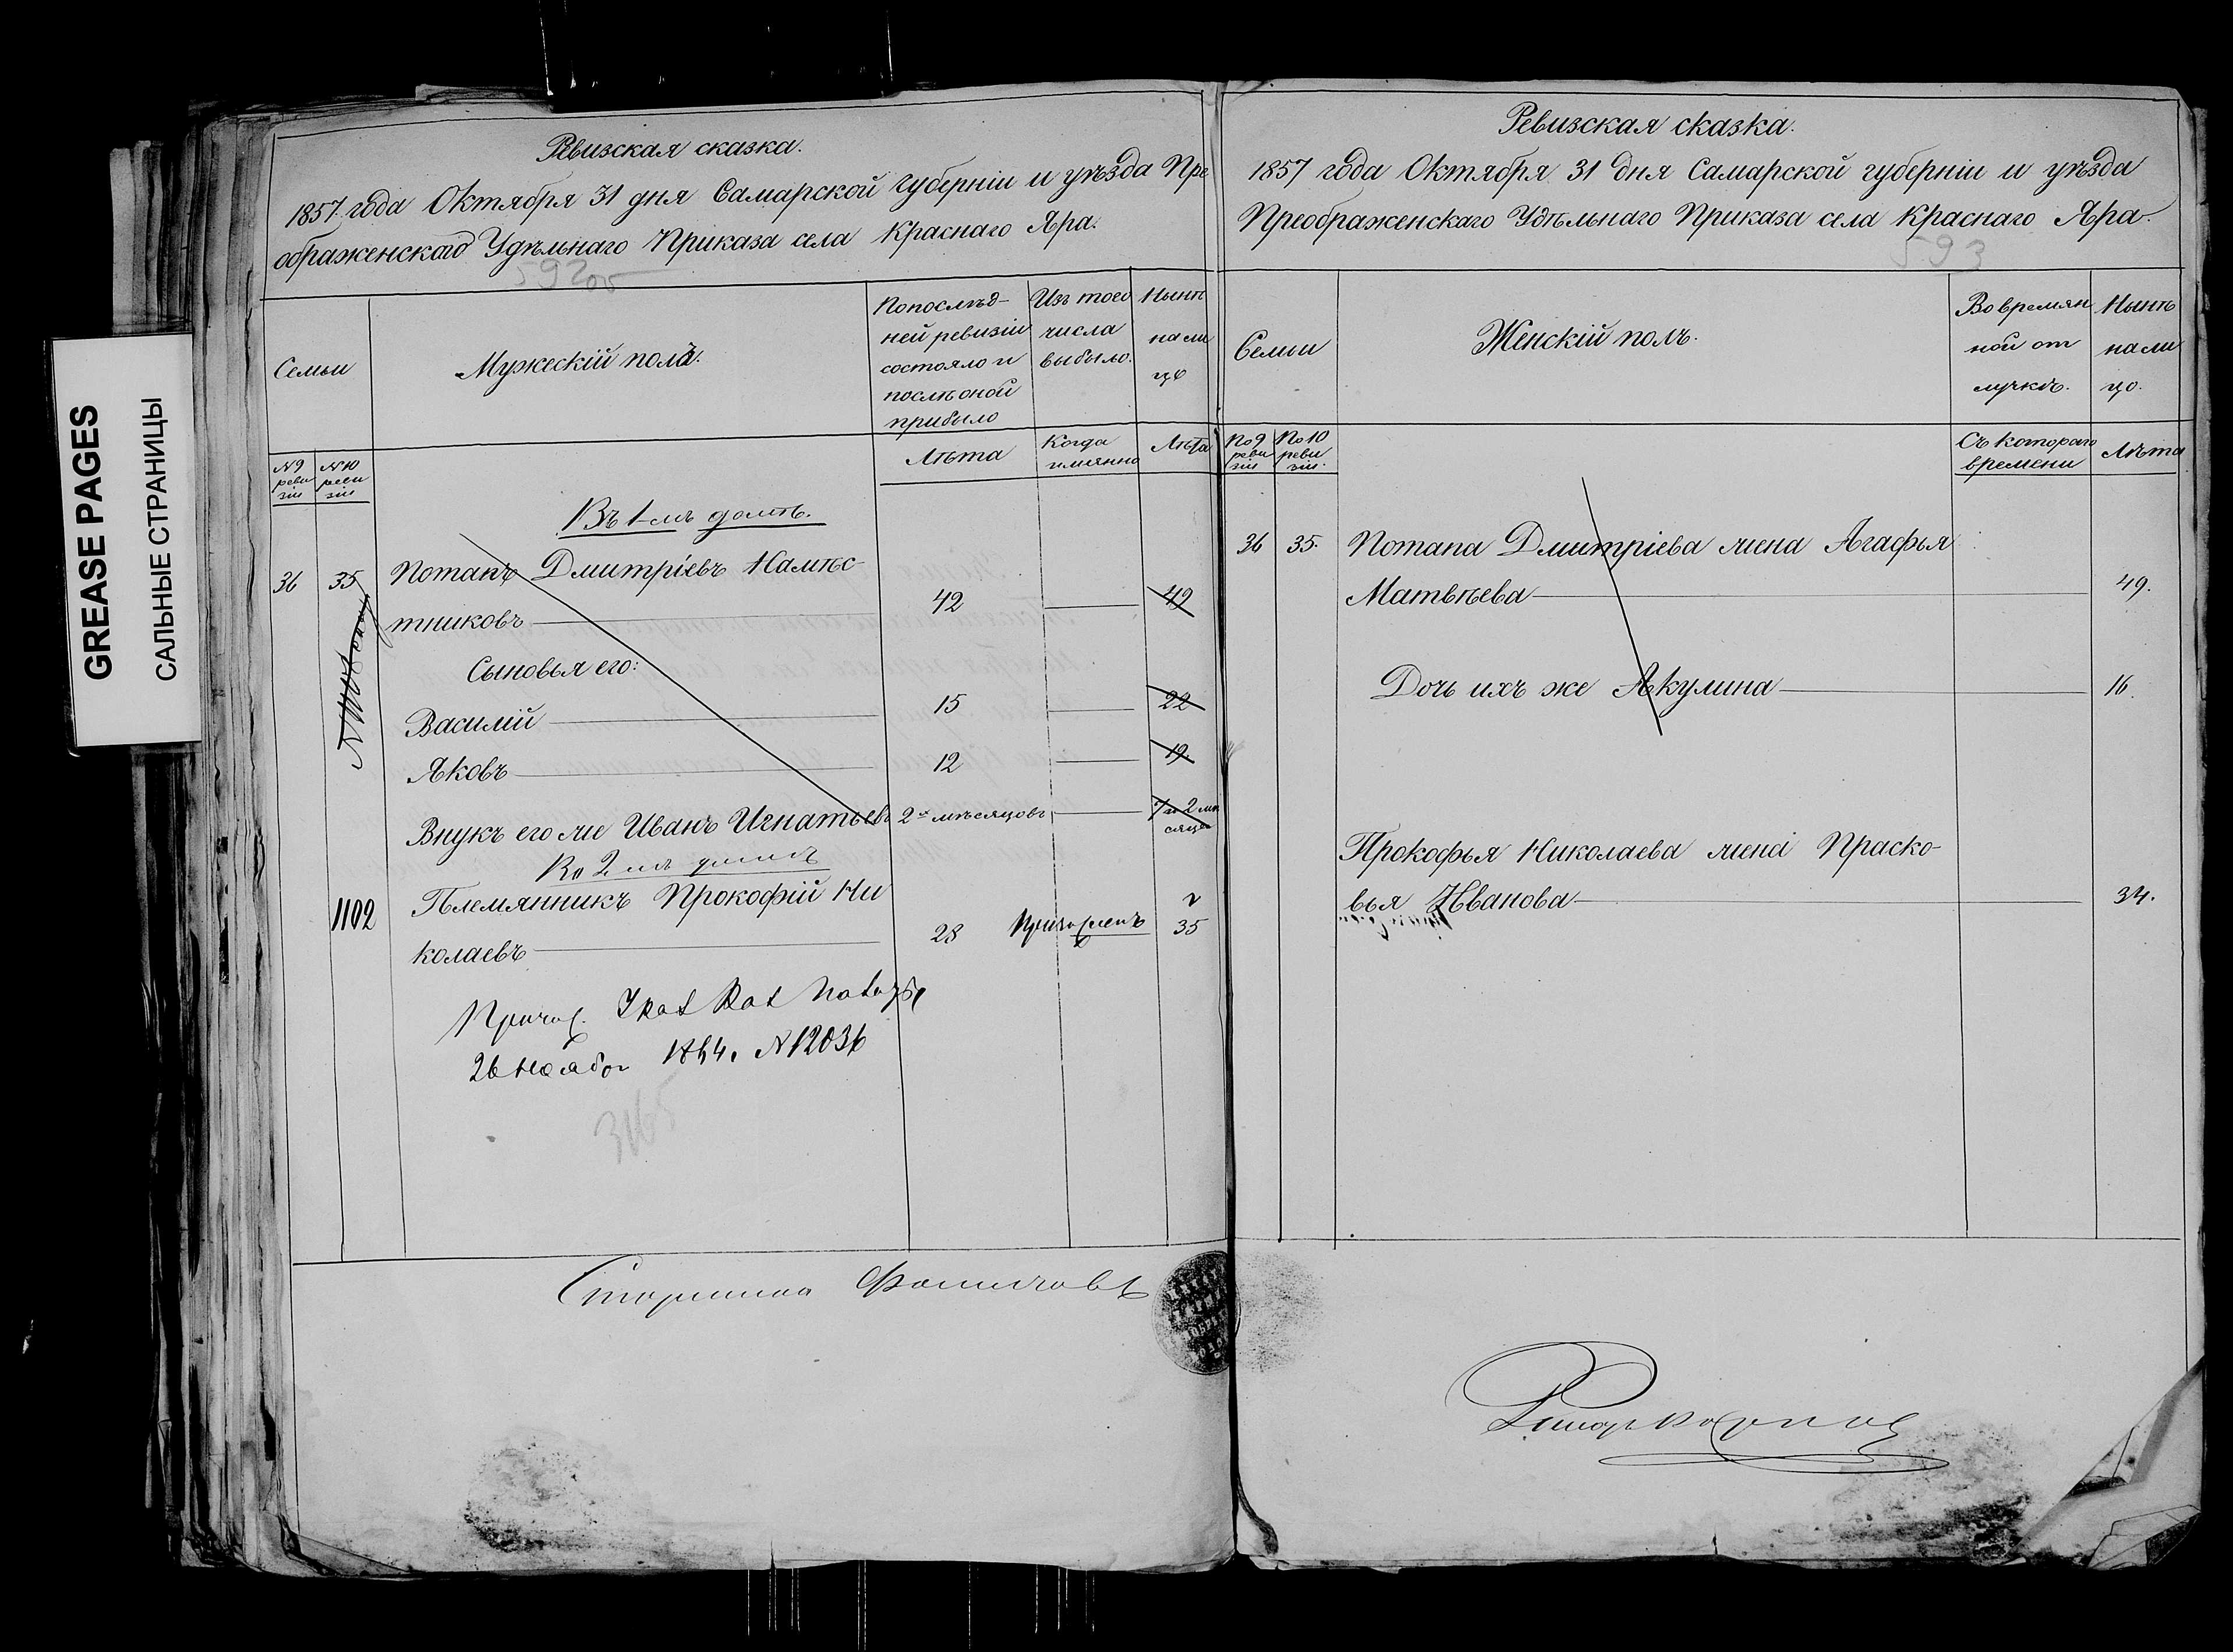 GREASE PAGES
САЛЬНЫЕ СТРАНИЦЫ
Ревизская сказка.
1857 года Октября 31 дня Самарской губерніи и уѣзда Пре
ображенскаго Удѣльнаго Приказа села Краснаго Яра.
592об
Семьи
Мужескій полъ.
Попослѣд-
ней ревизіи
состояло и
послѣ оной
прибыло
Изъ того
числа
выбыло.
Нынѣ
нали
цо
№9
реви
зіи
№10
реви
зіи
Лѣта
Когда
имянно
Лѣта
Въ 1-мъ домѣ.
36 35 Потапъ Дмитріевъ Намѣс-
тниковъ 42 49
Сыновья его:
Василій 15 22
Яковъ 12 19
Внукъ его же Иванъ Игнатьевъ 2хъ мѣсяцовъ 7 и 2 мѣ
сяца
Во 2 мъ домѣ
1102 Племянникъ Прокофій Ни
колаевъ 28 Причисленъ 35
Причис.
26 Ноября 1864. №12036
3165
Старшина Фомичовъ
Ревизская сказка.
1857 года Октября 31 дня Самарской губерніи и уѣзда
Преображенскаго Удѣльнаго Приказа села Краснаго Яра.
593
Семьи
Женскій полъ.
Во времян
ной от
лучкѣ.
Нынѣ
нали
цо.
№9
реви
зіи
№10
реви
зіи.
Съ котораго
времени
Лѣта
36 35. Потапа Дмитріева жена Агафья
Матвѣева 49.
Дочь ихъ же Акулина 16.
Прокофья Николаева жена Праско-
вья Иванова 34.